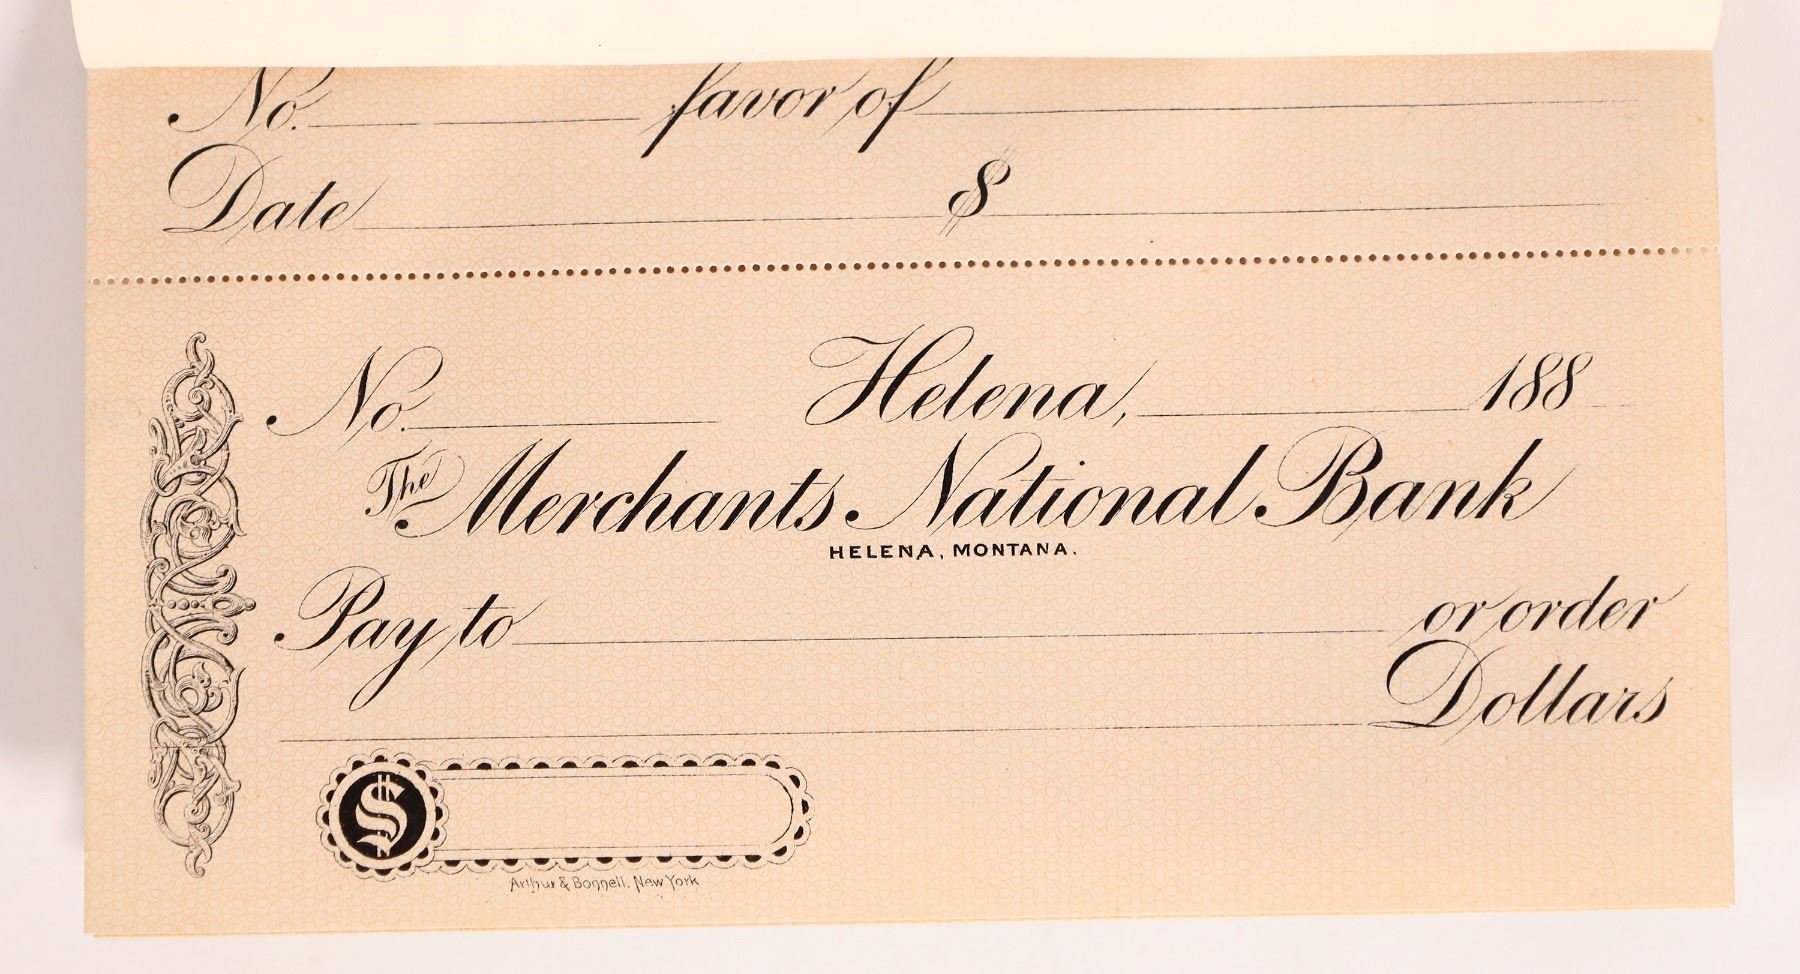 No. favor of
Date $
No. Helena, 188
The Merchants National Bank
HELENA, MONTANA.
Pay to or order
Dollars
$
Arthur & Bonnell, New York